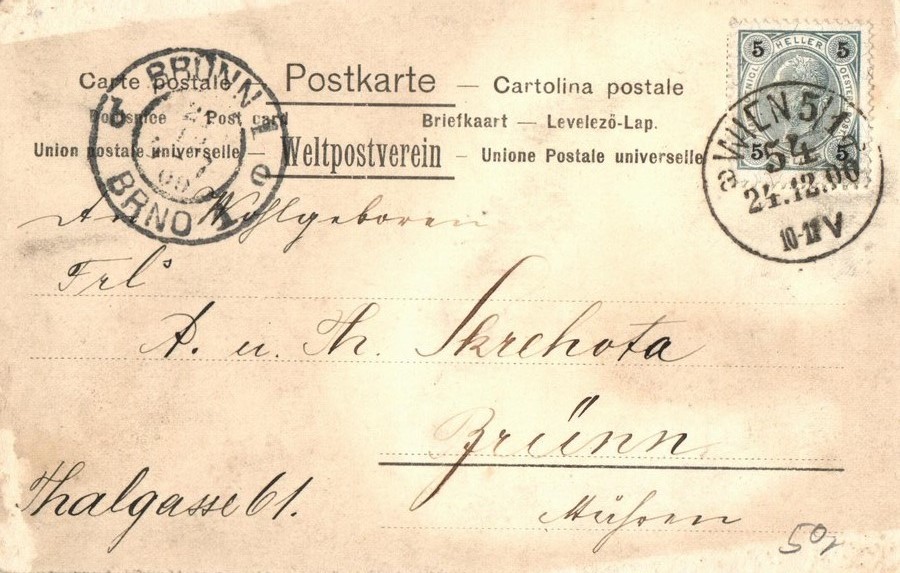 Carte postale Postkarte — Cartolina postale
Post card Briefkaart — Levelező-Lap.
Union postale universelle — Weltpostverein — Unione Postale universelle
BRÜNN 1
BRNO 1
5 HELLER 5
5 5
WIEN 5/1
54
24.12.00
10-11 V
An Wohlgeboren
Frl s
A. u. Th. Skrehota
Brünn
Thalgasse 61.
Mähren
50,